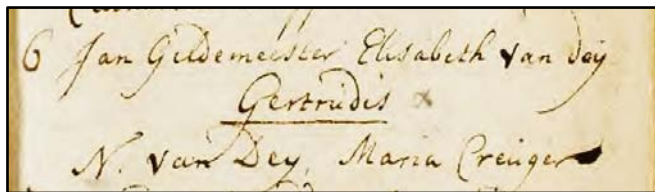 6 Jan Gildemeester Elisabeth van dey
Gertrudis x
N. van Dey, Maria Creuger